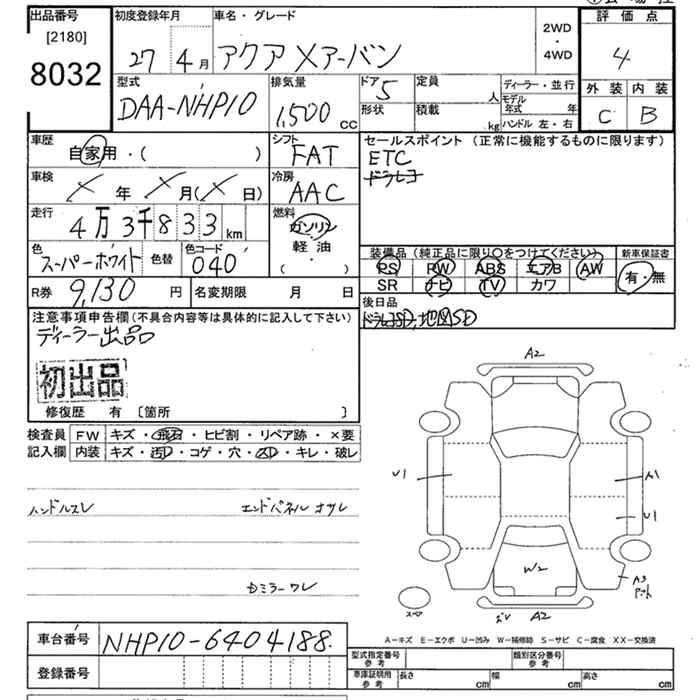 出品番号
[2180]
8032
初度登録年月
27 4月
車名・グレード
アクア Xアーバン
2WD
・
4WD
評価点
4
外装 内装
C B
型式
DAA-NHP10
排気量
1,500 cc
ドア 5
形状
定員 人
積載 kg
ディーラー・並行
モデル年式 年
ハンドル 左・右
車歴
自家用・( )
シフト
FAT
セールスポイント (正常に機能するものに限ります)
ETC
ドラレコ
車検
X 年 X 月(X 日)
冷房
AAC
走行
4万3千833 km
燃料
ガソリン
軽油
( )
色
スーパーホワイト
色替
色コード
040
装備品(純正品に限り○をつけてください)
PS PW ABS エアB AW
SR ナビ TV カワ
新車保証書
有・無
R券 9,130 円
名変期限 月 日
後日品
ドラレコSD, 地図SD
注意事項申告欄(不具合内容等は具体的に記入して下さい)
ディーラー出品
初出品
修復歴 有 〔箇所 〕
検査員記入欄
FW キズ・飛石・ヒビ割・リペア跡・×要
内装 キズ・汚レ・コゲ・穴・スレ・キレ・破レ
ハンドルスレ
エンドパネル オサレ
Dミラー ワレ
A2
U1
A1
U1
W2
A3
A2
A-キズ E-エクボ U-凹み W-補修跡 S-サビ C-腐食 XX-交換済
車台番号 NHP10-6404188
登録番号
型式指定番号 参考
類別区分番号 参考
車庫証明用 参考
長さ cm
幅 cm
高さ cm